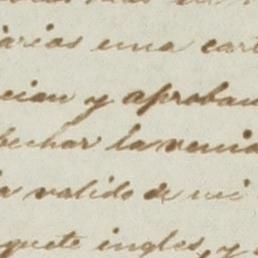 arias una cart
cian y aproban
bechar la venia
a valido de mi
quete ingles, y